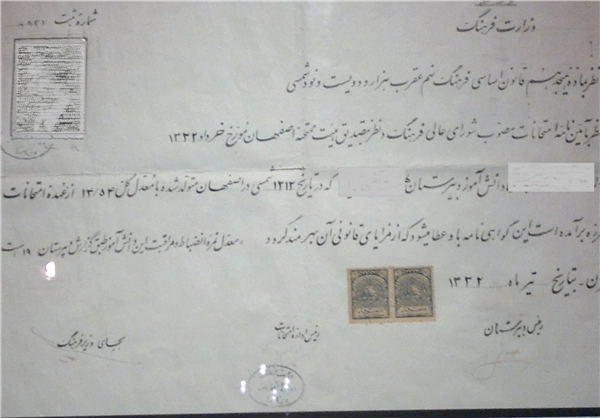 وزارت فرهنگ
شماره ثبت
نظر بماده هیجدهم قانون اساسی فرهنگ نهم عقرب هزار و دویست و نود شمسی
نظر بآئین نامه امتحانات مصوب شورای عالی فرهنگ و نظر بتصدیق هیئت ممتحنه اصفهان مورخ خرداد ۱۳۲۲
دانش آموز دبیرستان که در تاریخ ۱۲۱۲ شمسی در اصفهان متولد شده با معدل کل ۱۳/۵۴ از عهده امتحانات
برآمده است این گواهی نامه باو عطا میشود که از مزایای قانونی آن بهره مند گردد و معدل نمره انضباط و مراقبت این دانش آموز طبق گزارش دبیرستان ۱۹ است
بتاریخ تیر ماه ۱۳۲۲
رئیس دبیرستان
رئیس اداره امتحانات
بجای وزیر فرهنگ